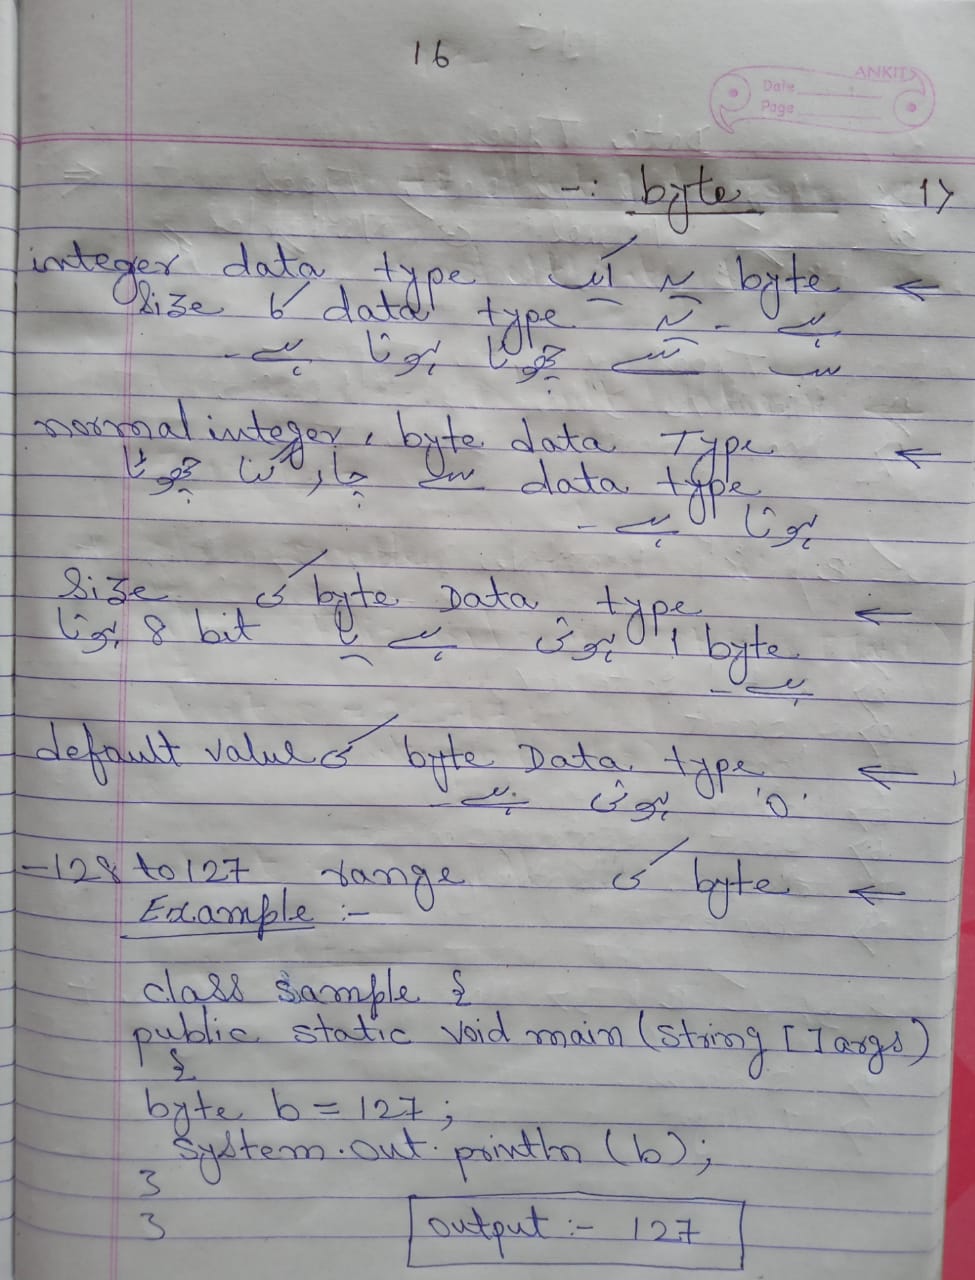 16
ANKIT
Date
Page
1) byte :-
← byte یہ ایک integer data type
ہے۔ یہ data type کا size
سب سے چھوٹا ہوتا ہے۔
← byte data Type، normal integer
data type سے چار گنا چھوٹا
ہوتا ہے۔
← byte Data type کی Size
1 byte ہوتی ہے یا 8 bit ہوتا
ہے۔
← byte Data type کی default value
'0' ہوتی ہے۔
← byte کی range -128 to 127
Example :-
class Sample {
public static void main (String [] args)
{
byte b = 127;
System.out.println (b);
}
}
output :- 127